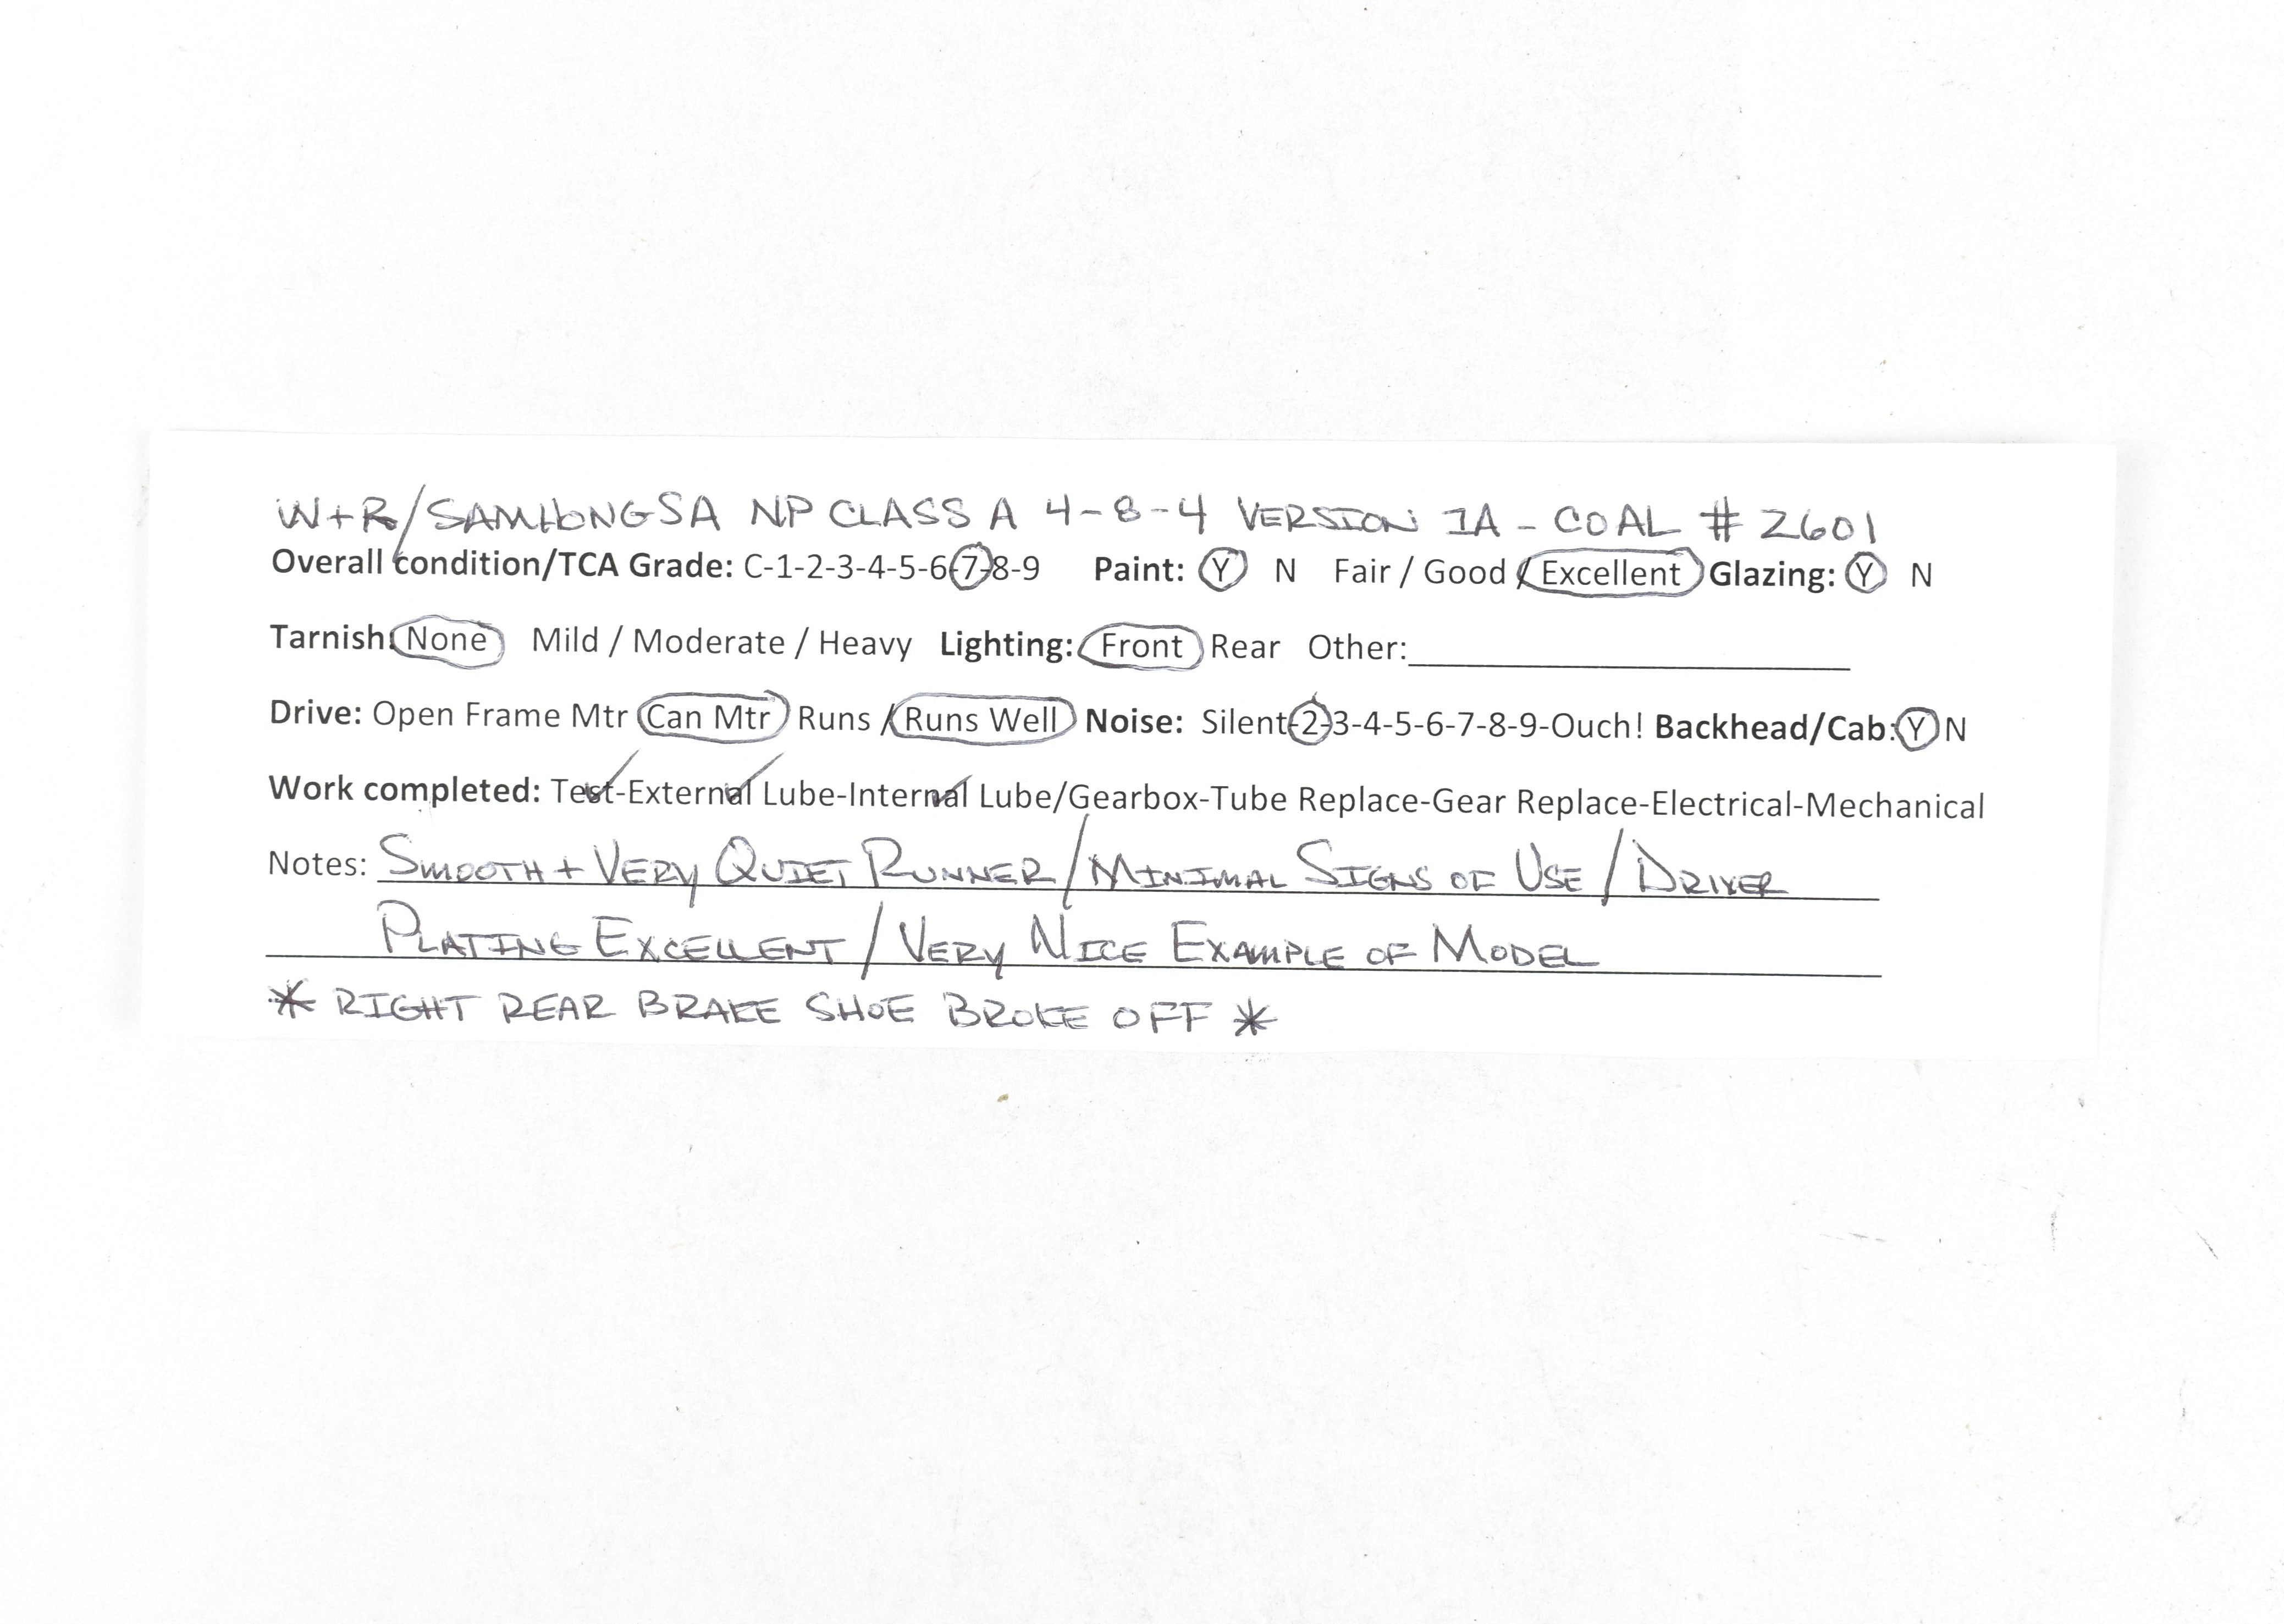 W+R/SAMHONGSA NP CLASS A 4-8-4 VERSION 1A - COAL # 2601
Overall condition/TCA Grade: C-1-2-3-4-5-6-7-8-9 Paint: Y N Fair / Good / Excellent Glazing: Y N
Tarnish: None Mild / Moderate / Heavy Lighting: Front Rear Other:
Drive: Open Frame Mtr Can Mtr Runs / Runs Well Noise: Silent-2-3-4-5-6-7-8-9-Ouch! Backhead/Cab: Y N
Work completed: Test-External Lube-Internal Lube/Gearbox-Tube Replace-Gear Replace-Electrical-Mechanical
Notes: SMOOTH + VERY QUIET RUNNER / MINIMAL SIGNS OF USE / DRIVER
PLATING EXCELLENT / VERY NICE EXAMPLE OF MODEL
* RIGHT REAR BRAKE SHOE BROKE OFF *